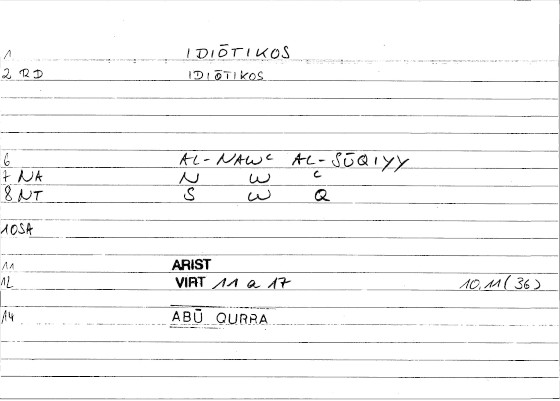 1 IDIŌTIKOS
2 RD IDIŌTIKOS
6 AL-NAWᶜ AL-SŪQIYY
7 NA N W ᶜ
8 NT S W Q
10SA
11 ARIST
12 VIRT 11 a 17 10.11(36)
14 ABŪ QURRA